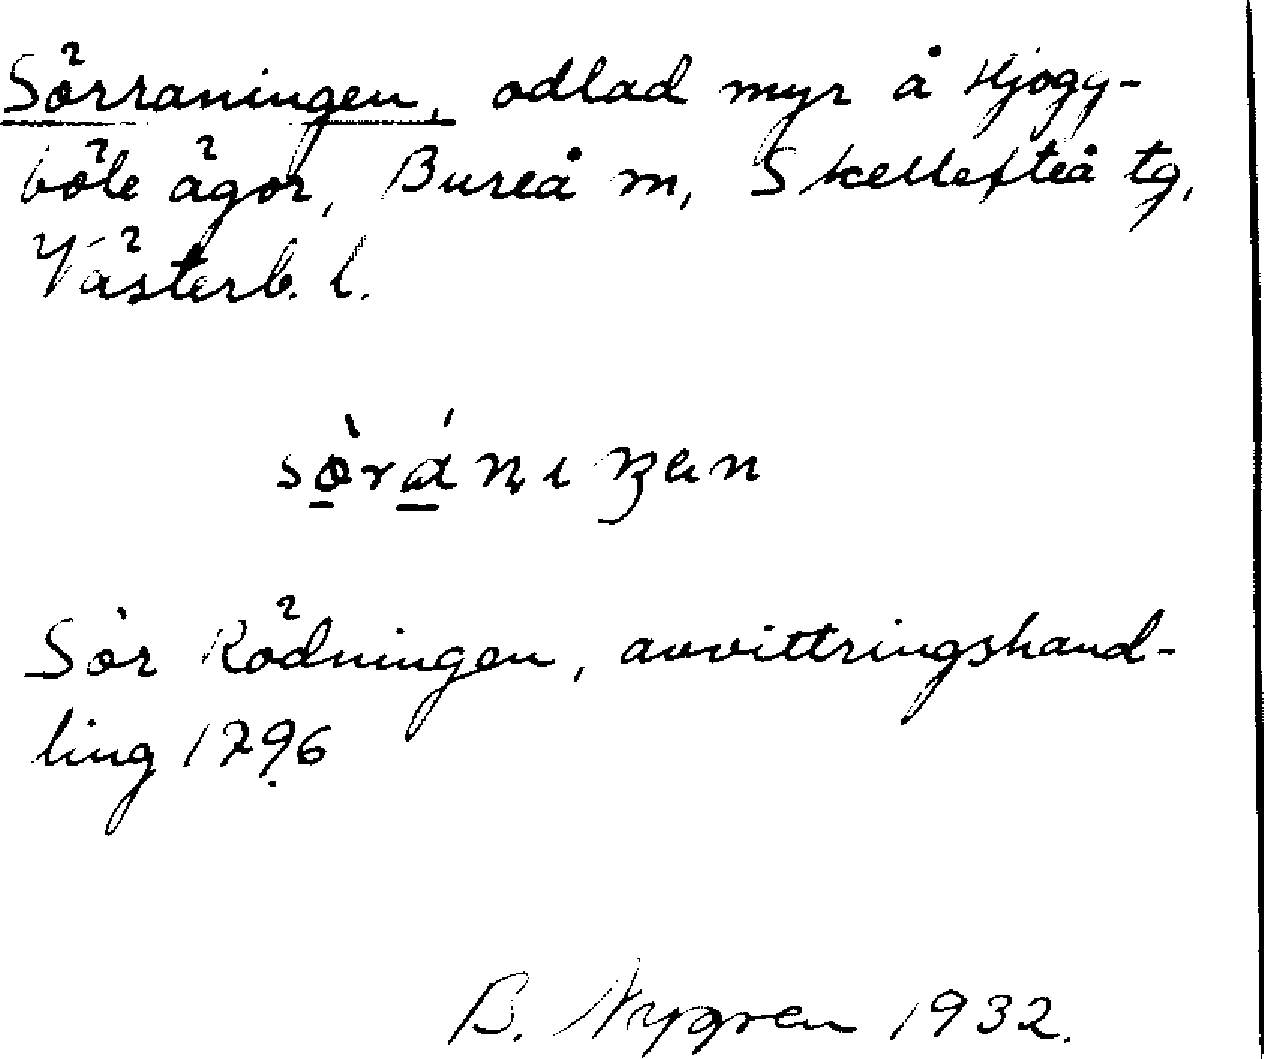 Sörraningen, odlad myr å Hjogg-
böle ägor, Bureå m, Skellefteå tg,
Västerb. l.
sö̀rániŋen
Sör Rödningen, avvittringshand-
ling 1796
B. Nygren 1932.